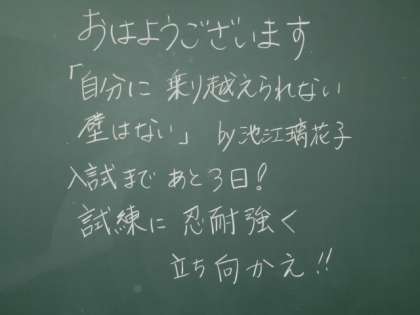 おはようございます
「自分に 乗り越えられない
壁はない」 by池江璃花子
入試まで あと3日!
試練に 忍耐強く
立ち向かえ!!